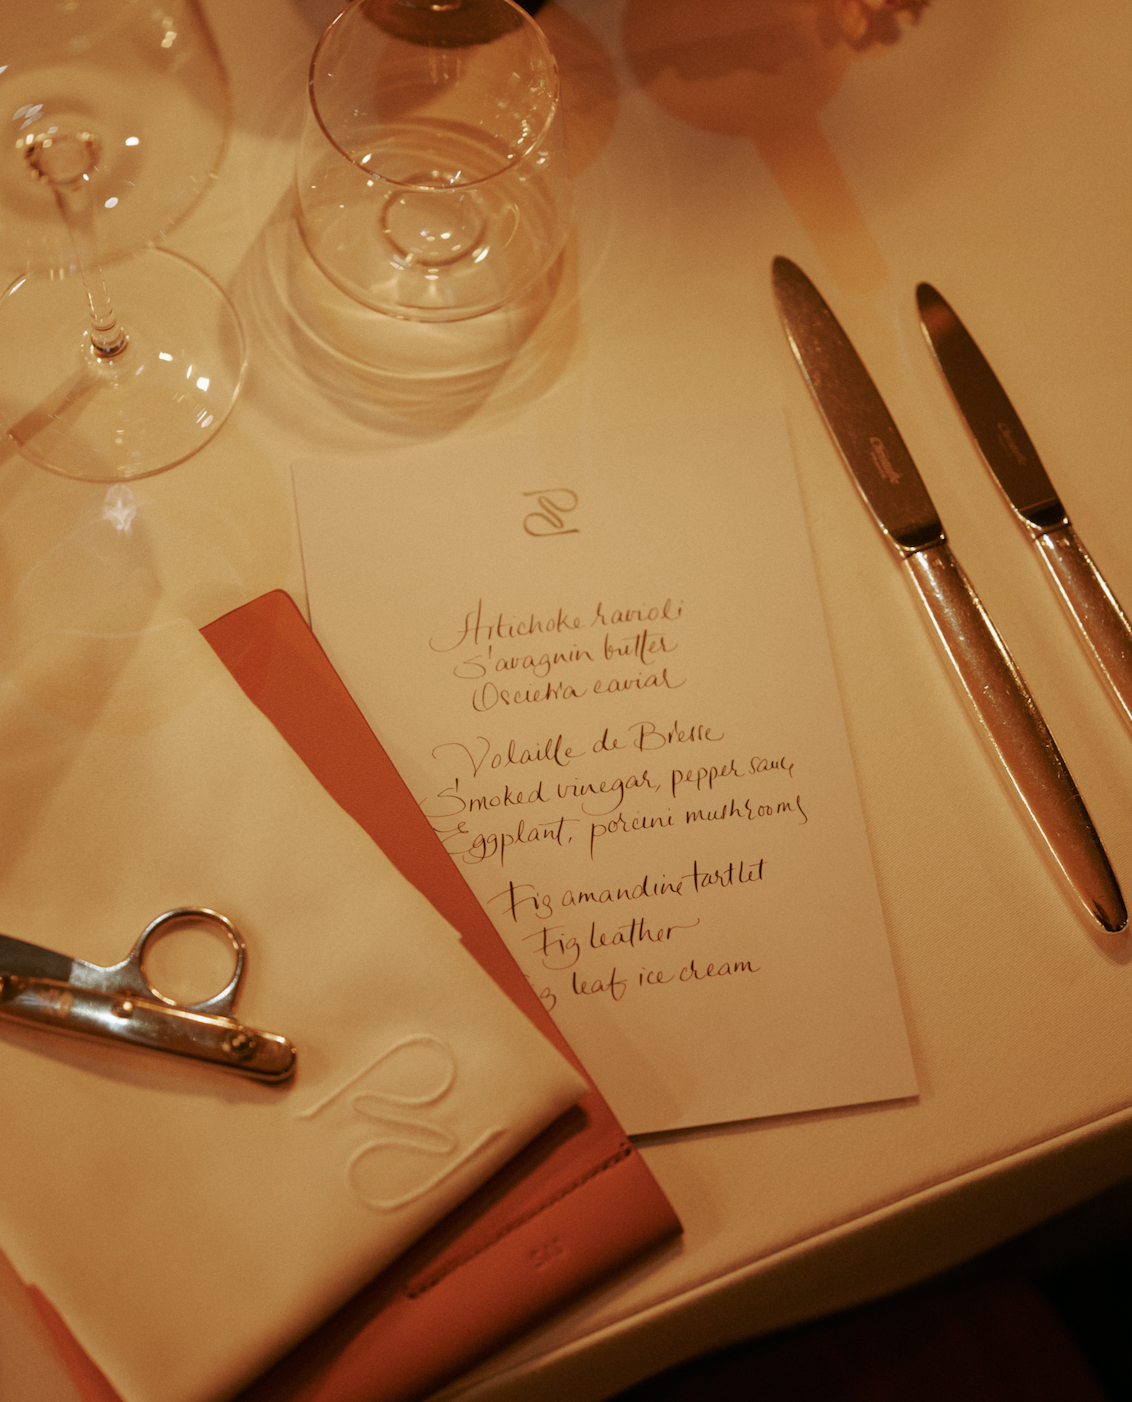 Artichoke ravioli
Savagnin butter
Oscietra caviar
Volaille de Bresse
Smoked vinegar, pepper sauce
Eggplant, porcini mushrooms
Fig amandine tartlet
Fig leather
leaf ice cream